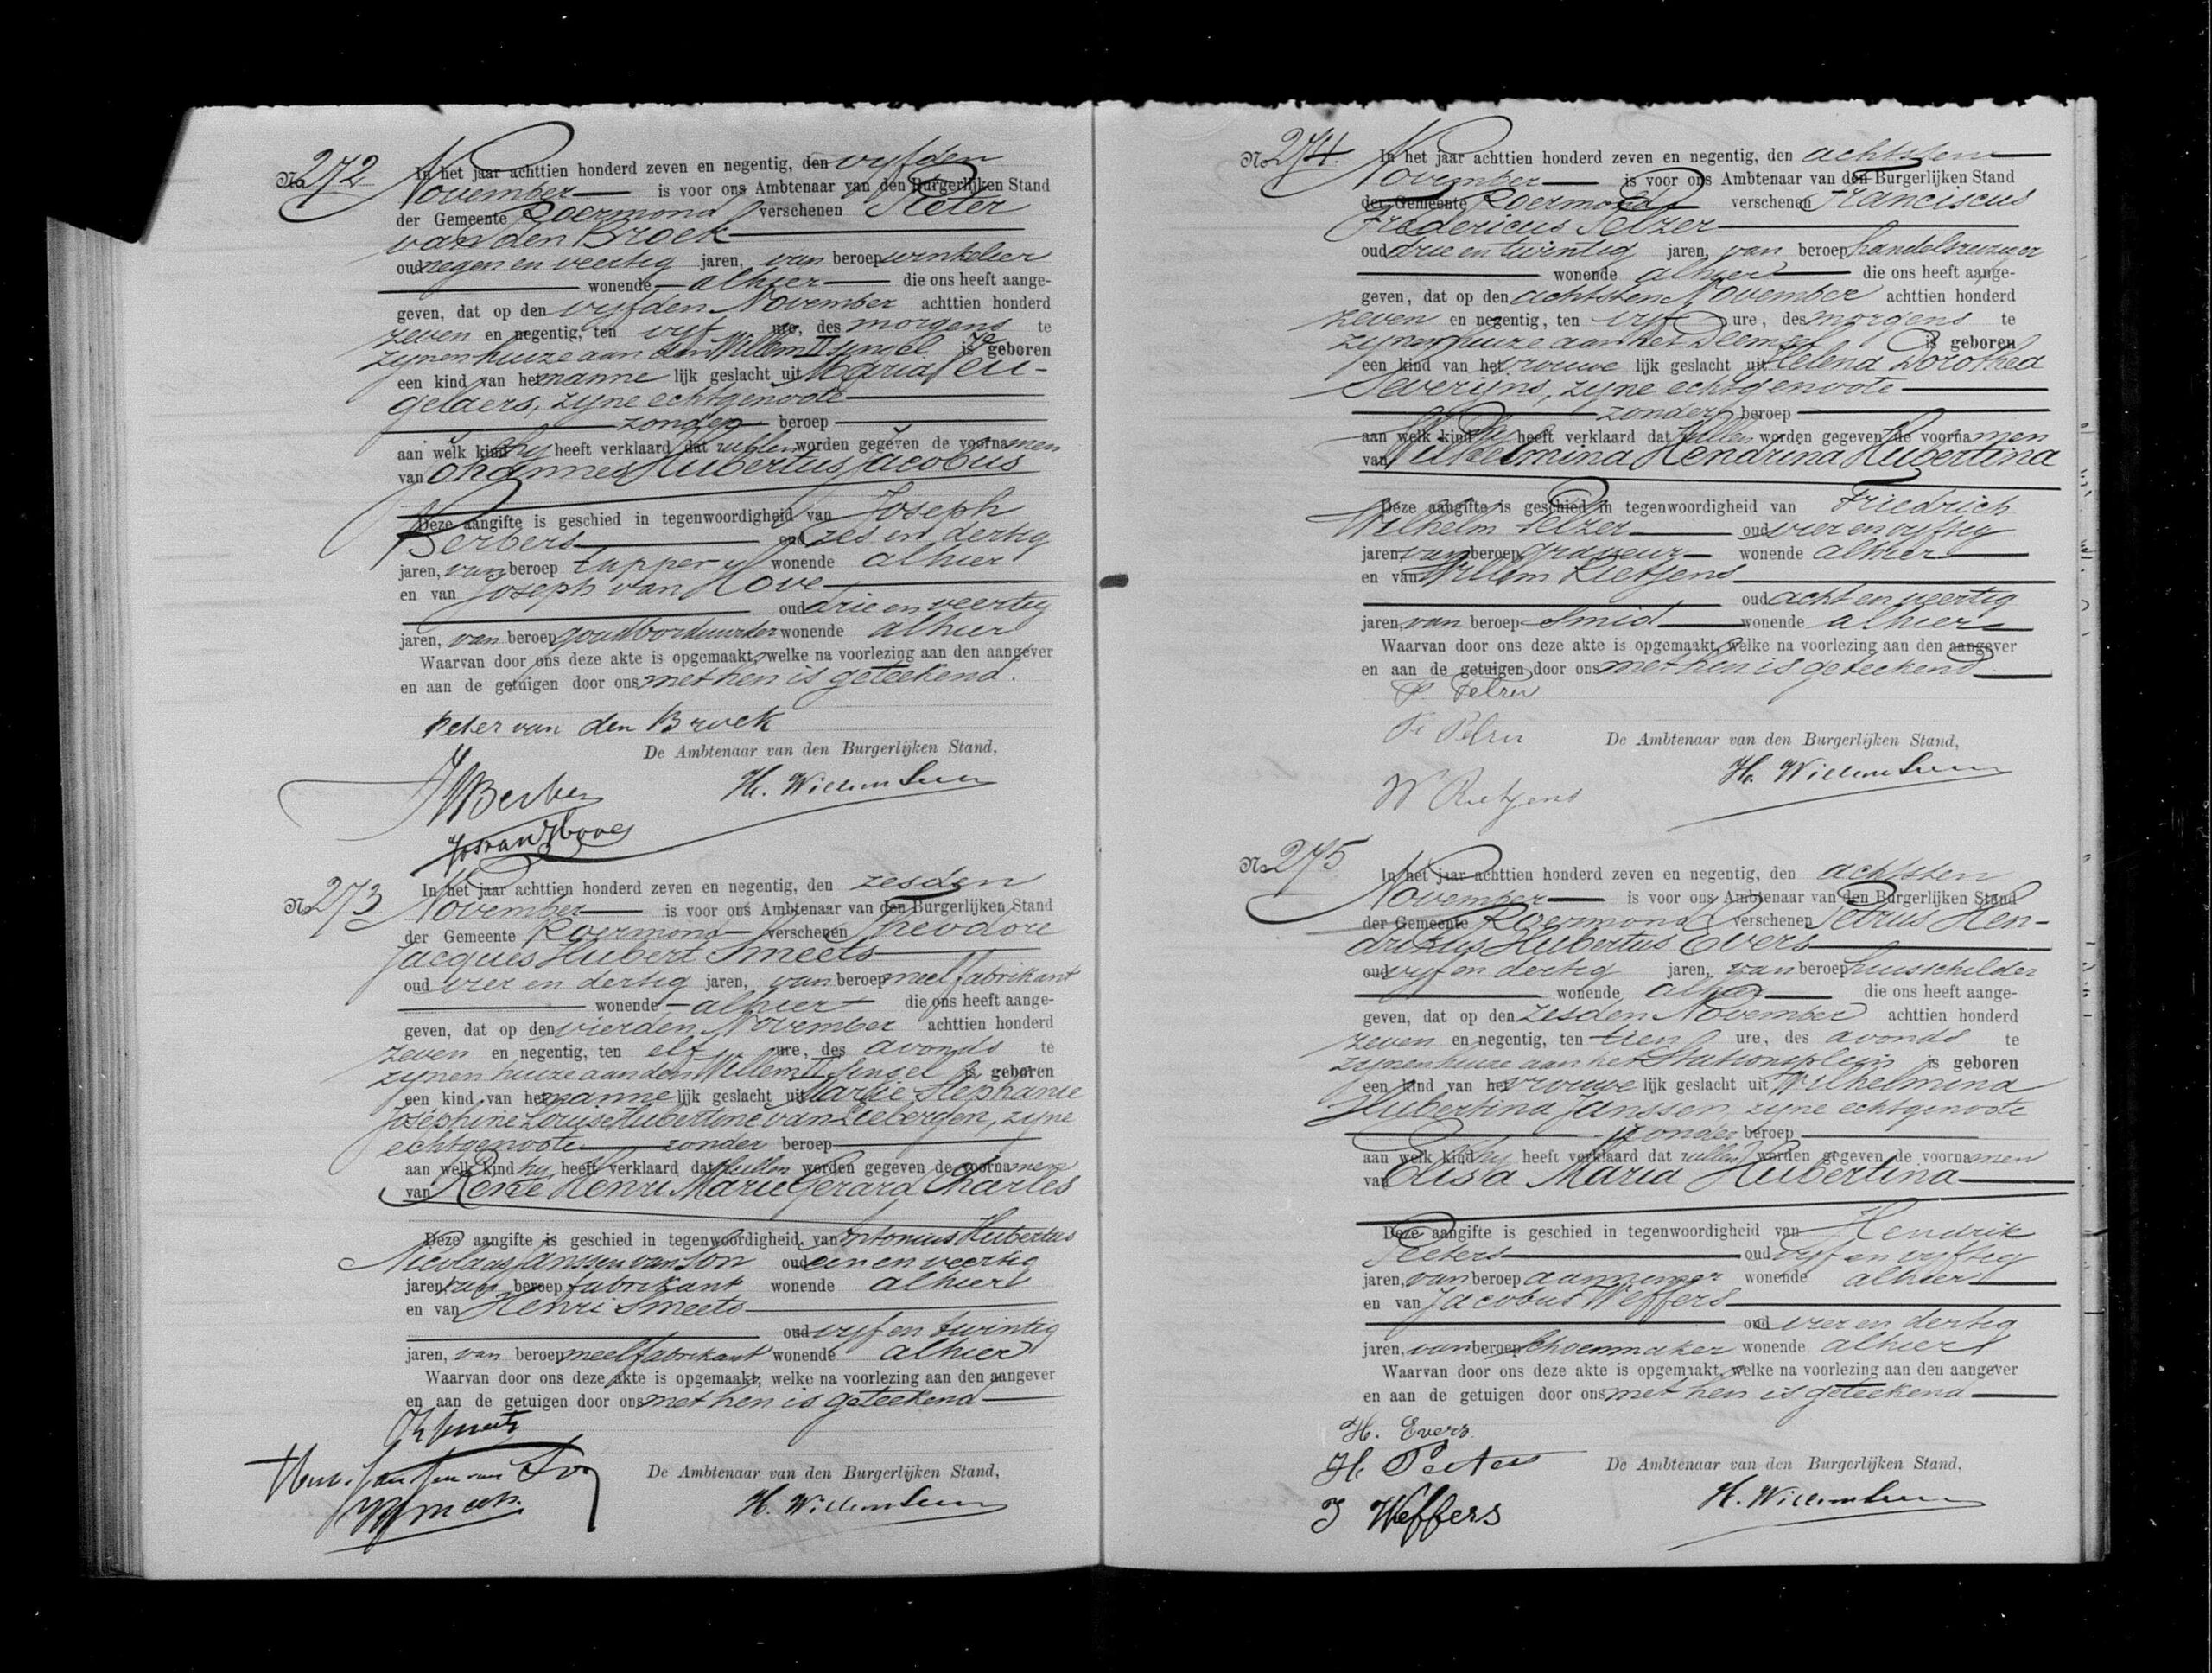 No 272 In het jaar achttien honderd zeven en negentig, den vyfden
November is voor ons Ambtenaar van den Burgerlijken Stand
der Gemeente Roermond verschenen Pieter
van den Broek
oud negen en veertig jaren, van beroep winkelier
wonende alhier die ons heeft aange-
geven, dat op den vyfden November achttien honderd
zeven en negentig, ten vyf ure, des morgens te
zynen huize aan den Willem II singel is geboren
een kind van het manne lijk geslacht uit Maria
gelaers, zyne echtgenoote
zonder beroep
aan welk kind hy heeft verklaard dat zullen worden gegeven de voornamen
van Johannes Hubertus Jacobus
Deze aangifte is geschied in tegenwoordigheid van Joseph
Berbers oud zes en dertig
jaren, van beroep tapper wonende alhier
en van Joseph van Hove
oud drie en veertig
jaren, van beroep goudborduurder wonende alhier
Waarvan door ons deze akte is opgemaakt, welke na voorlezing aan den aangever
en aan de getuigen door ons met hen is geteekend.
Peter van den Broek
De Ambtenaar van den Burgerlijken Stand,
H. Willemsen
Jos van Hove
No 273 In het jaar achttien honderd zeven en negentig, den zesden
November is voor ons Ambtenaar van den Burgerlijken Stand
der Gemeente Roermond verschenen Theodore
Jacques Hubert Smeets
oud vier en dertig jaren, van beroep meelfabrikant
wonende alhier die ons heeft aange-
geven, dat op den vierden November achttien honderd
zeven en negentig, ten elf ure, des avonds te
zynen huize aan den Willem II singel is geboren
een kind van het manne lijk geslacht uit Marie Stephanie
Joséphine Louise Hubertine van Liebergen, zyne
echtgenoote zonder beroep
aan welk kind hy heeft verklaard dat zullen worden gegeven de voornamen
van René Henri Marie Gerard Charles
Deze aangifte is geschied in tegenwoordigheid van Antonius Hubertus
Nicolaas Janssen van Son oud een en veertig
jaren, van beroep fabrikant wonende alhier
en van Henri Smeets
oud vyf en twintig
jaren, van beroep meelfabrikant wonende alhier
Waarvan door ons deze akte is opgemaakt, welke na voorlezing aan den aangever
en aan de getuigen door ons met hen is geteekend
De Ambtenaar van den Burgerlijken Stand,
H. Willemsen
No 274. In het jaar achttien honderd zeven en negentig, den achtsten
November is voor ons Ambtenaar van den Burgerlijken Stand
der Gemeente Roermond verschenen Franciscus
Fredericus Pelzer
oud drie en twintig jaren, van beroep handelsreiziger
wonende alhier die ons heeft aange-
geven, dat op den achtsten November achttien honderd
zeven en negentig, ten vyf ure, des morgens te
zynen huize aan het is geboren
een kind van het vrouwe lijk geslacht uit Helena Dorothea
Severyns, zyne echtgenoote
zonder beroep
aan welk kind hy heeft verklaard dat zullen worden gegeven de voornamen
van Wilhelmina Hendrina Hubertina
Deze aangifte is geschied in tegenwoordigheid van Friedrich
Wilhelm Pelzer oud vier en vyftig
jaren, van beroep graveur wonende alhier
en van Willem Rietjens
oud acht en veertig
jaren, van beroep Smid wonende alhier
Waarvan door ons deze akte is opgemaakt, welke na voorlezing aan den aangever
en aan de getuigen door ons met hen is geteekend
De Ambtenaar van den Burgerlijken Stand,
H. Willemsen
W Rietjens
No 275 In het jaar achttien honderd zeven en negentig, den achtsten
November is voor ons Ambtenaar van den Burgerlijken Stand
der Gemeente Roermond verschenen Petrus Hen-
drikus Hubertus Evers
oud vyf en dertig jaren, van beroep huisschilder
wonende alhier die ons heeft aange-
geven, dat op den zesden November achttien honderd
zeven en negentig, ten tien ure, des avonds te
zynen huize aan het Stationsplein is geboren
een kind van het vrouwe lijk geslacht uit Wilhelmina
Hubertina Janssen, zyne echtgenoote
zonder beroep
aan welk kind hy heeft verklaard dat zullen worden gegeven de voornamen
van Elisa Maria Hubertina
Deze aangifte is geschied in tegenwoordigheid van Hendrik
Peeters oud vyf en vyftig
jaren, van beroep aannemer wonende alhier
en van Jacobus Weffers
oud vier en dertig
jaren, van beroep schoenmaker wonende alhier
Waarvan door ons deze akte is opgemaakt, welke na voorlezing aan den aangever
en aan de getuigen door ons met hen is geteekend
H. Evers
H. Peeters
De Ambtenaar van den Burgerlijken Stand,
H. Willemsen
J Weffers